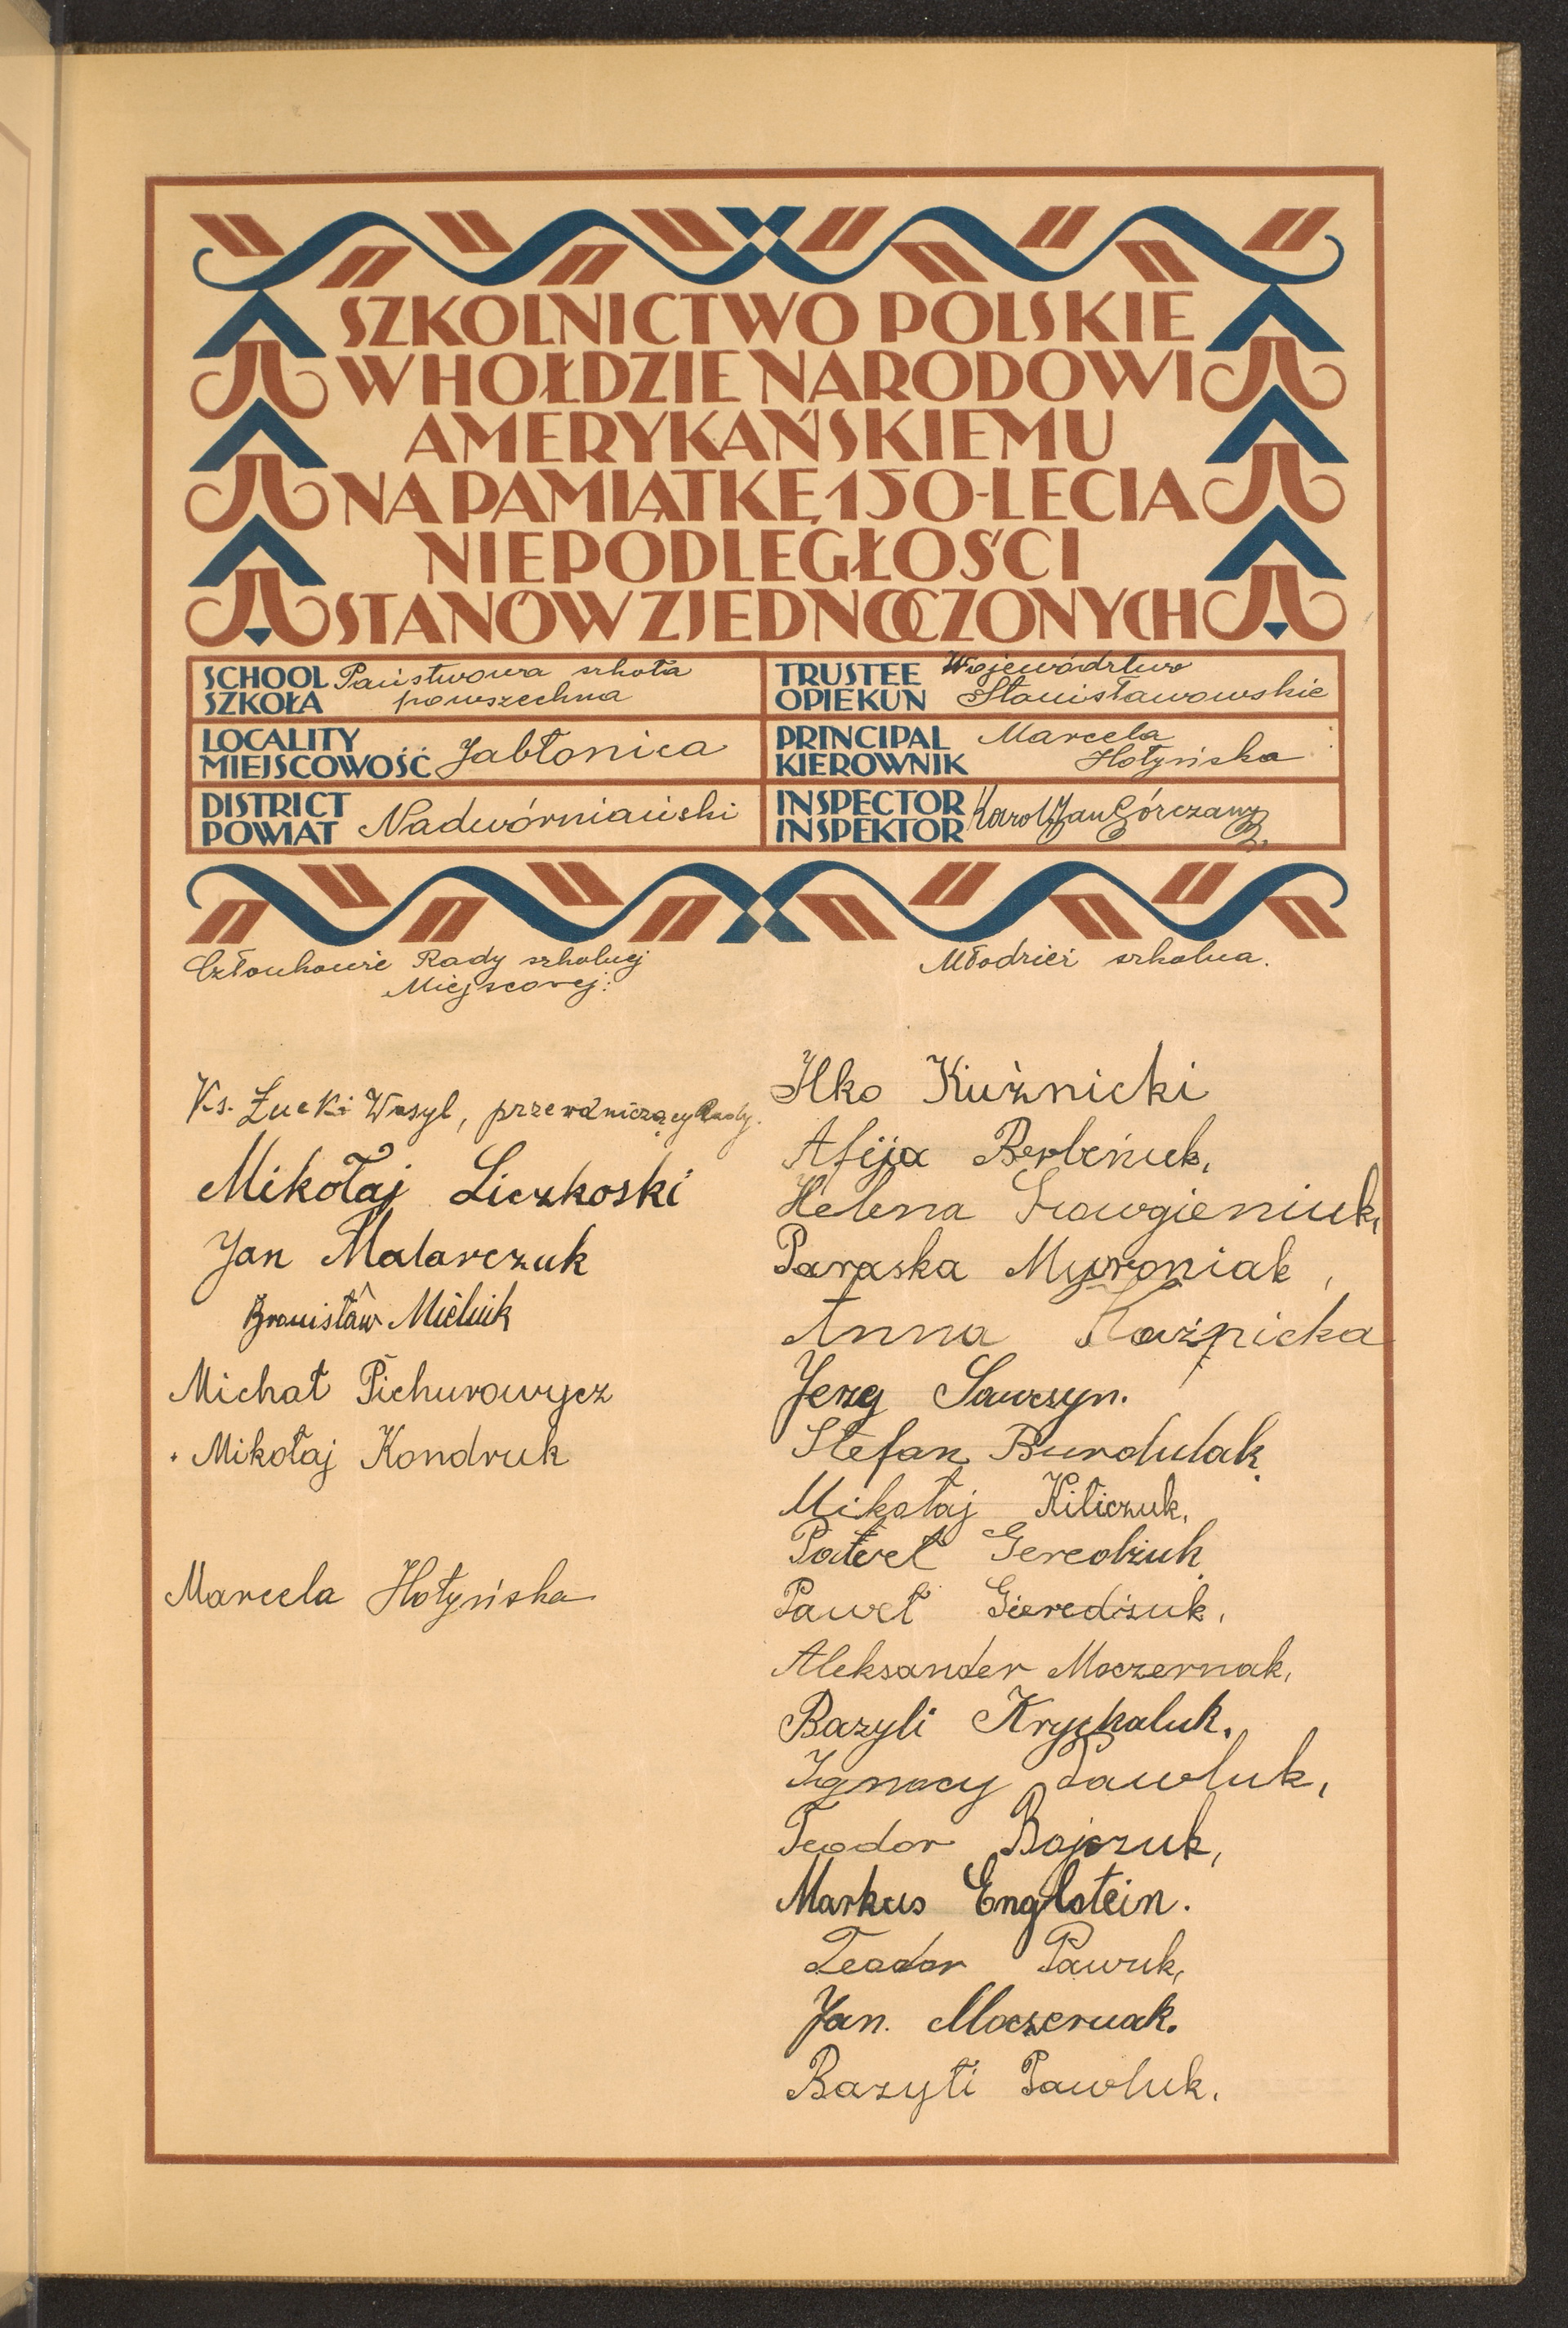 SZKOLNICTWO POLSKIE
W HOŁDZIE NARODOWI
AMERYKAŃSKIEMU
NA PAMIĄTKĘ 150-LECIA
NIEPODLEGŁOŚCI
STANÓW ZJEDNOCZONYCH
SCHOOL
SZKOŁA
Państwowa szkoła
powszechna
TRUSTEE
OPIEKUN
Województwo
Stanisławowskie
LOCALITY
MIEJSCOWOŚĆ
Jabłonica
PRINCIPAL
KIEROWNIK
Marcela
Hołyńska
DISTRICT
POWIAT
Nadwórniański
INSPECTOR
INSPEKTOR
Karol Jan
Członkowie Rady szkolnej
Miejscowej:
Ks. Łucki Wasyl, przewodniczący Rady.
Mikołaj Liczkoski
Jan Malarczuk
Bronisław Mielnik
Michał Pichurowycz
Mikołaj Kondruk
Marcela Hołyńska
Młodzież szkolna.
Ilko Kuźnicki
Afija
Helena
Paraska Myroniak,
Anna
Jerzy Sawczyn.
Stefan Burdulak.
Mikołaj Kiliczuk.
Paweł
Paweł Gieredżuk,
Aleksander Moczernak,
Bazyli
Ignacy Pawluk,
Teodor Bojczuk,
Markus Englstein.
Teodor Pawuk,
Jan. Moczernak.
Bazyli Pawluk.